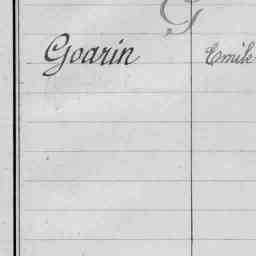 G
Goarin Emile